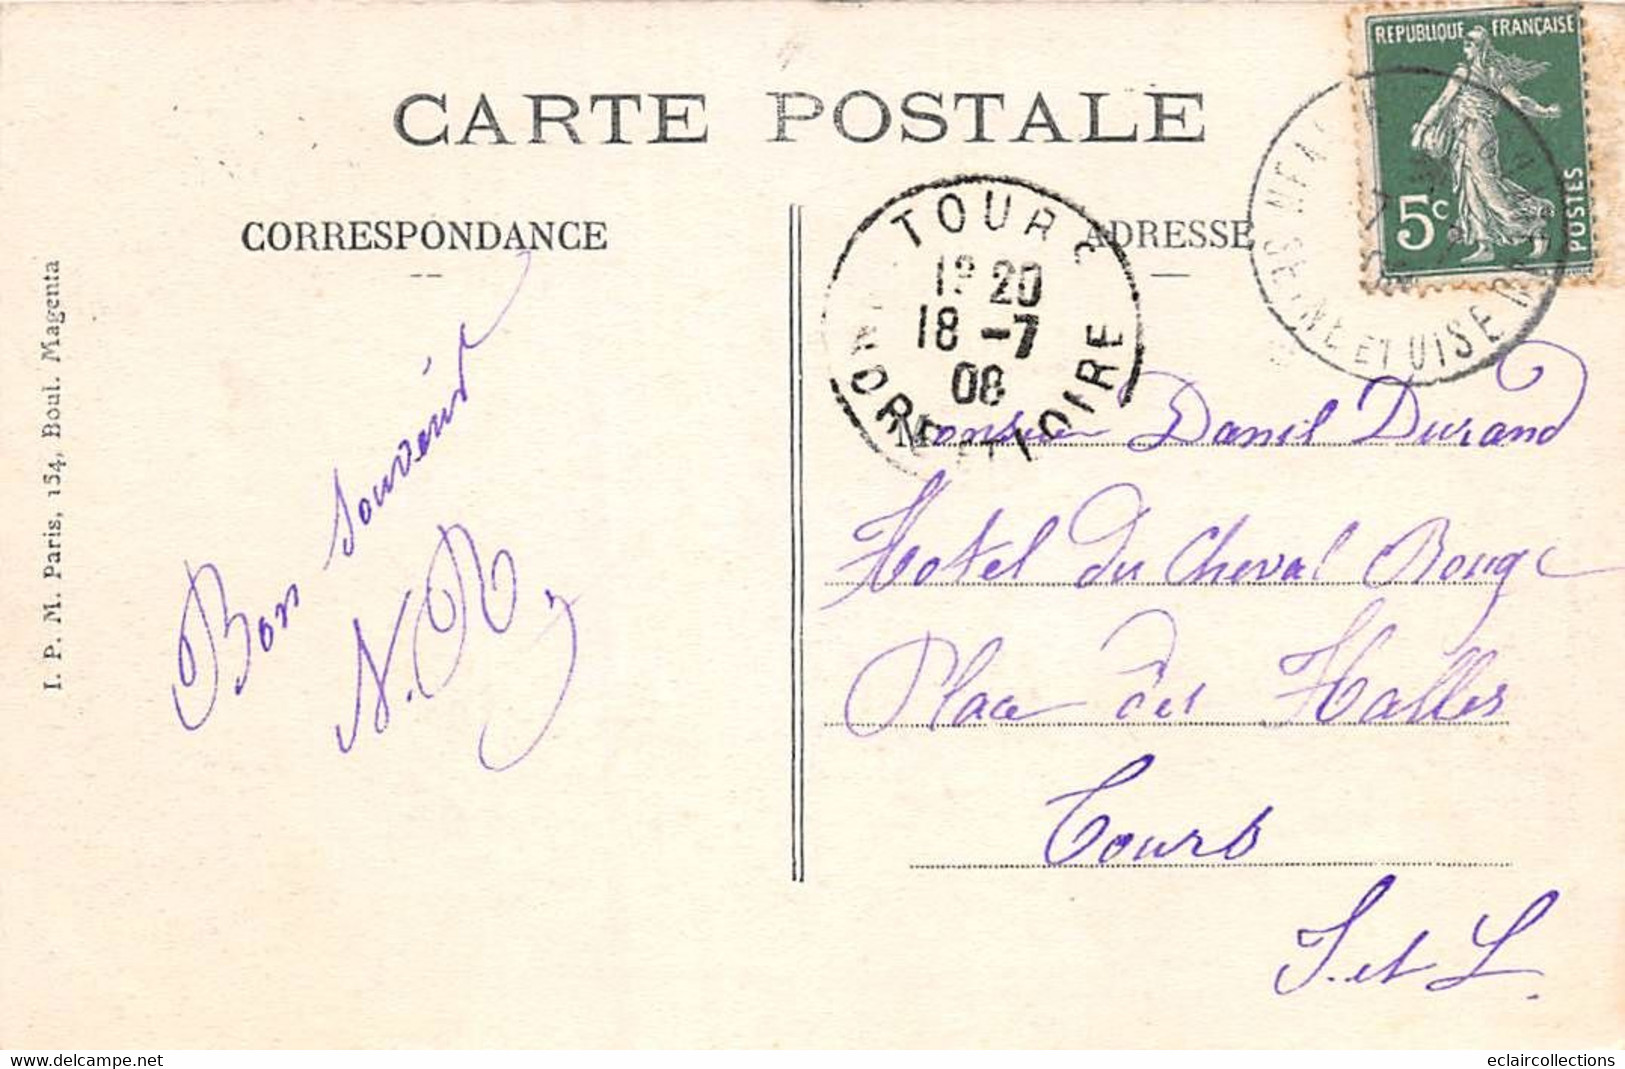 CARTE POSTALE
CORRESPONDANCE
ADRESSE
REPUBLIQUE FRANÇAISE
5c
POSTES
SEINE ET OISE
TOURS
20
18 -7
08
INDRE ET LOIRE
I. P. M. Paris, 154, Boul. Magenta
Bon Souvenir
N. R.
Monsieur Danil Durand
Hotel du Cheval Rouge
Place des Halles
Tours
I. et L.
eclaircollections